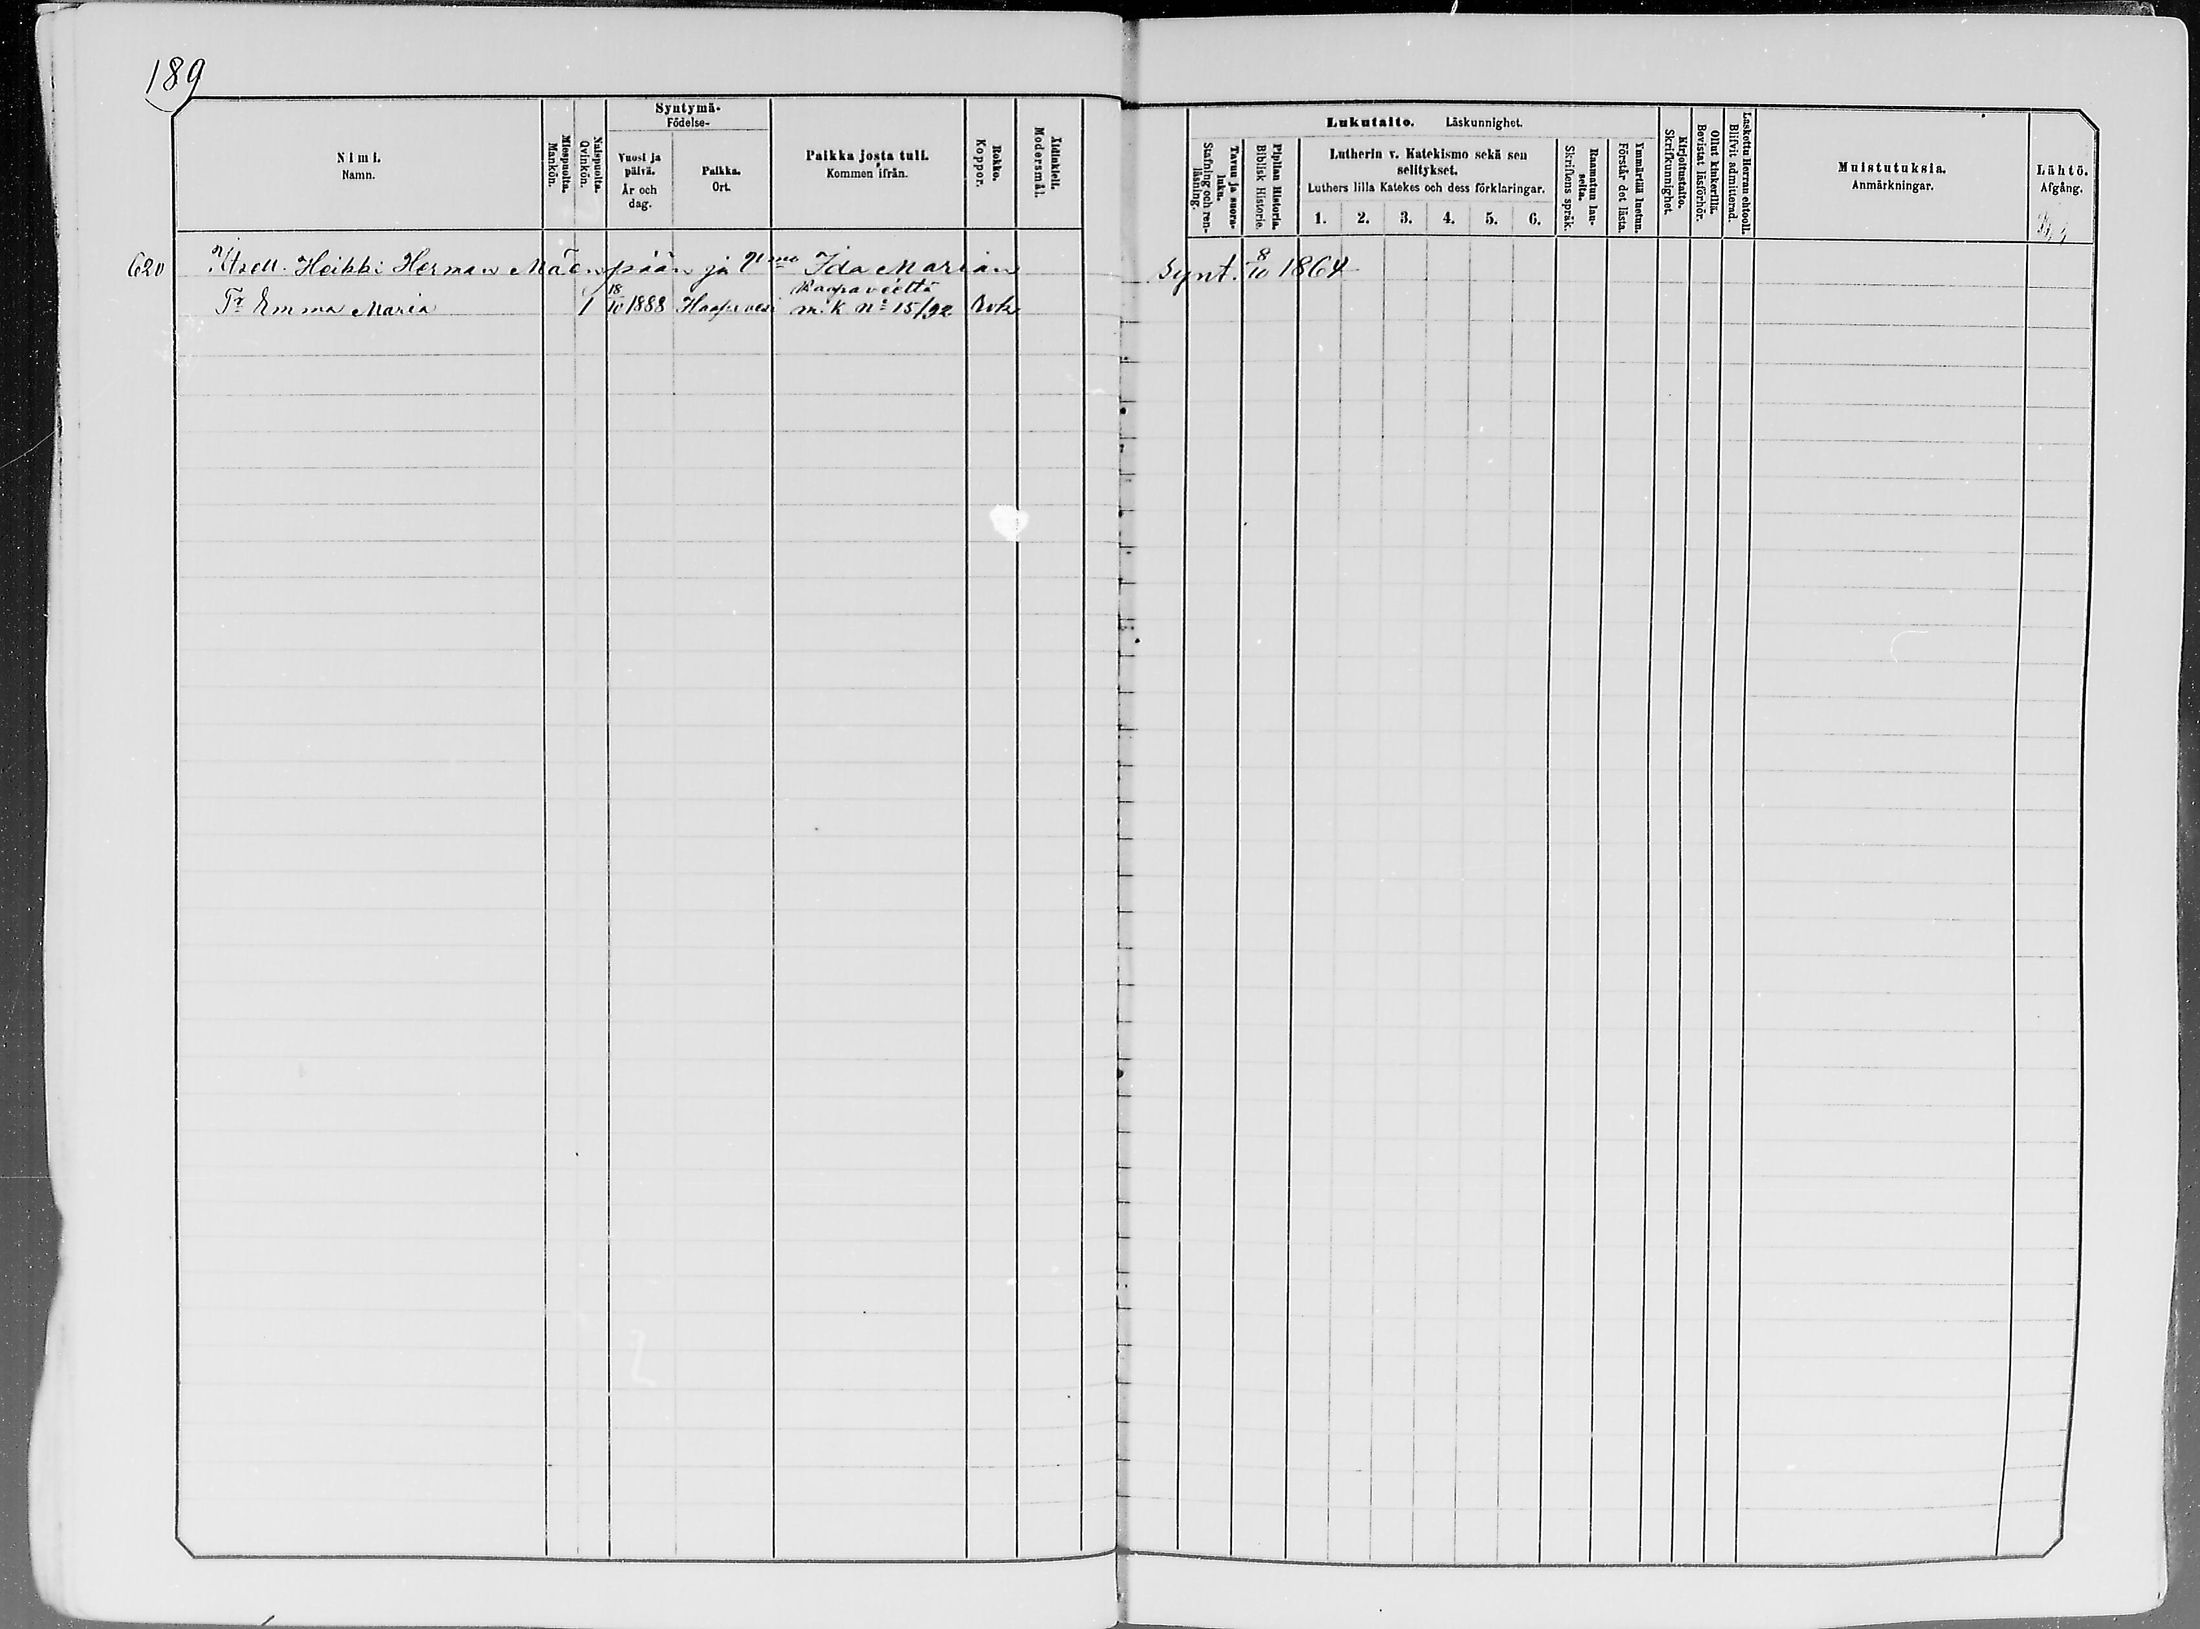 189
Syntymä-
Födelse-
Nimi.
Namn.
Miespuolta.
Mankön.
Naispuolta.
Qvinkön.
Vuosi ja päivä.
År och dag.
Paikka.
Ort.
Paikka josta tuli.
Kommen ifrån.
Rokko.
Koppor.
Äidinkieli.
Modersmål.
Lukutaito. Läskunnighet.
Tavuu ja suora-luku.
Stafning och ren-läsning.
Piplian Historia.
Biblisk Historie.
Lutherin v. Katekismo sekä sen
selitykset.
Luthers lilla Katekes och dess förklaringar.
1. 2. 3. 4. 5. 6.
Raamatun lau-seita.
Skriftens språk.
Ymmärtää luetun.
Förstår det lästa.
Kirjoitustaito.
Skrifkunnighet.
Ollut kinkerillä.
Bevistat läsförhör.
Laskettu Herran ehtool.
Blifvit admitterad.
Muistutuksia.
Anmärkningar.
Lähtö.
Afgång.
620 Heikki Herman Mäenpään ja Ida Marian synt. 8/10 1864
Haapaveeltä
Tr Emma Maria 1 18/10 1888 Haapavesi m.k. No 15/92 Rok